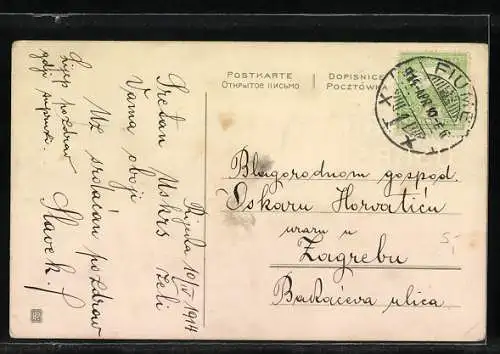 POSTKARTE
DOPISNICE
Открытое письмо
POCZTÓWK
FIUME
914
Rijeka 10/IV 1914
Sretan Uskrs želi
Vama oboji
Uz srdačan pozdrav
Slavek.
Lijep pozdrav
gdji supruzi.
Blagorodnom gospod.
Oskaru Horvatiću
u
Zagrebu
Bakačeva ulica
5,-